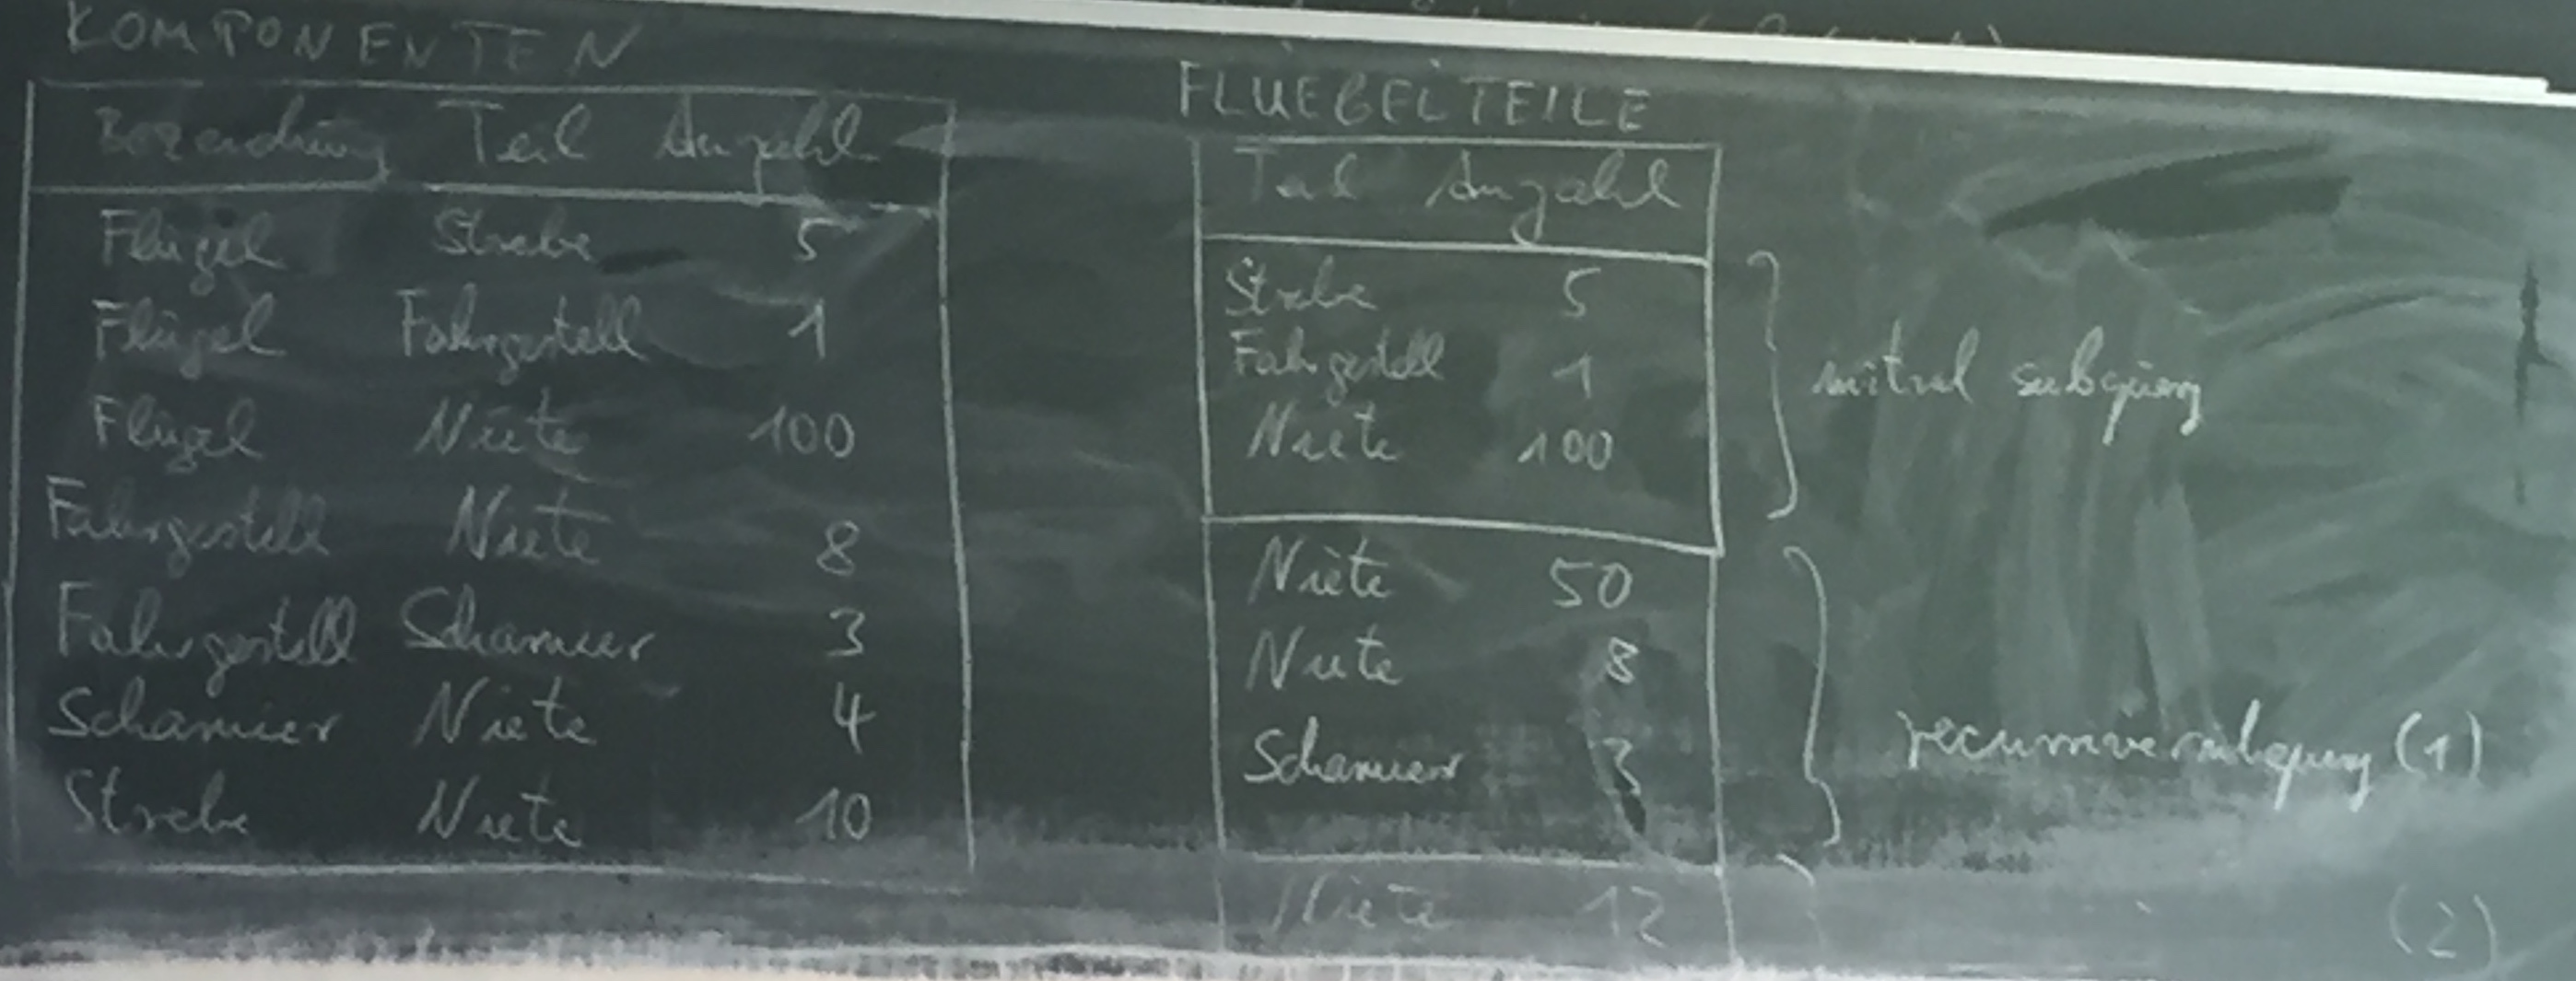 KOMPONENTEN
Bezeichnung Teil Anzahl
Flügel Strebe 5
Flügel Fahrgestell 1
Flügel Niete 100
Fahrgestell Niete 8
Fahrgestell Scharnier 3
Scharnier Niete 4
Strebe Niete 10
FLUEGELTEILE
Teil Anzahl
Strebe 5
Fahrgestell 1
Niete 100
initial subquery
Niete 50
Niete 8
Scharnier 3
recursive subquery (1)
Niete 12
(2)